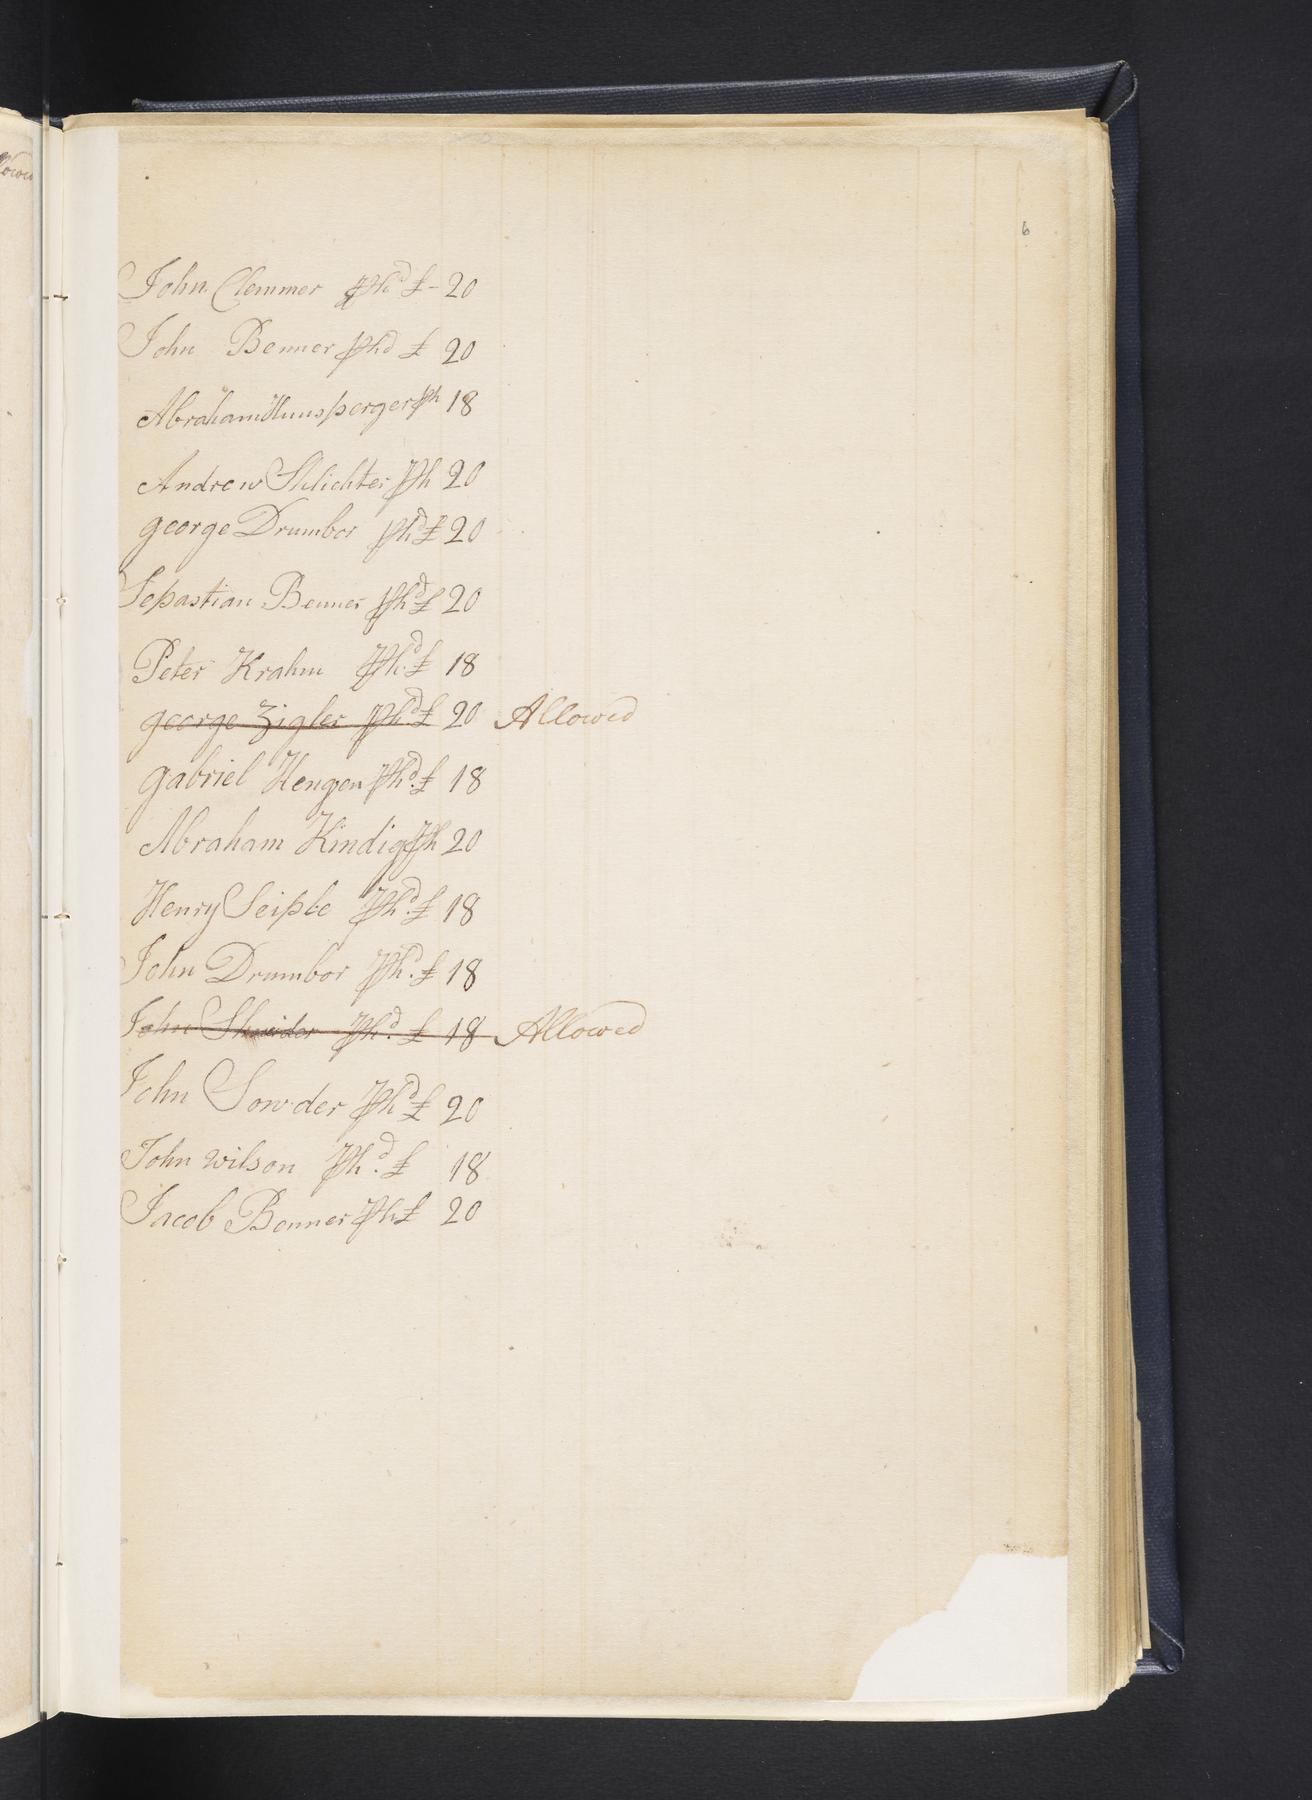 6
John Clemmer Phd £ - 20
John Benner Phd £ 20
Abraham Hunsperger Ph 18
Andrew Shlichter Ph 20
george Drumbor Phd £ 20
Sepastian Benner Phd £ 20
Peter Krahm Phd £ 18
george Zigler Phd £ 20 Allowed
gabriel Hengen Phd. £ 18
Abraham Kindig Ph 20
Henry Seiple Phd. £ 18
John Drumbor Phd. £ 18
John Shnider Phd. £ 18 Allowed
John Sowder Phd £ 20
John wilson Phd. £ 18
Jacob Benner Ph £ 20